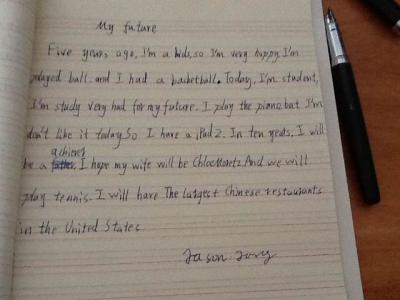 My future
Five years ago, I'm a kids, so I'm very happy I'm
played ball. and I had a basketball. Today, I'm student,
I'm study very had for my future. I play the piano. but I'm
don't like it today. So I have a iPad 2. In ten years, I will
achiever
be a father, I hope my wife will be Chloe Moretz. And we will
play tennis. I will have The largest Chinese restaurants
in the United States.
Jason